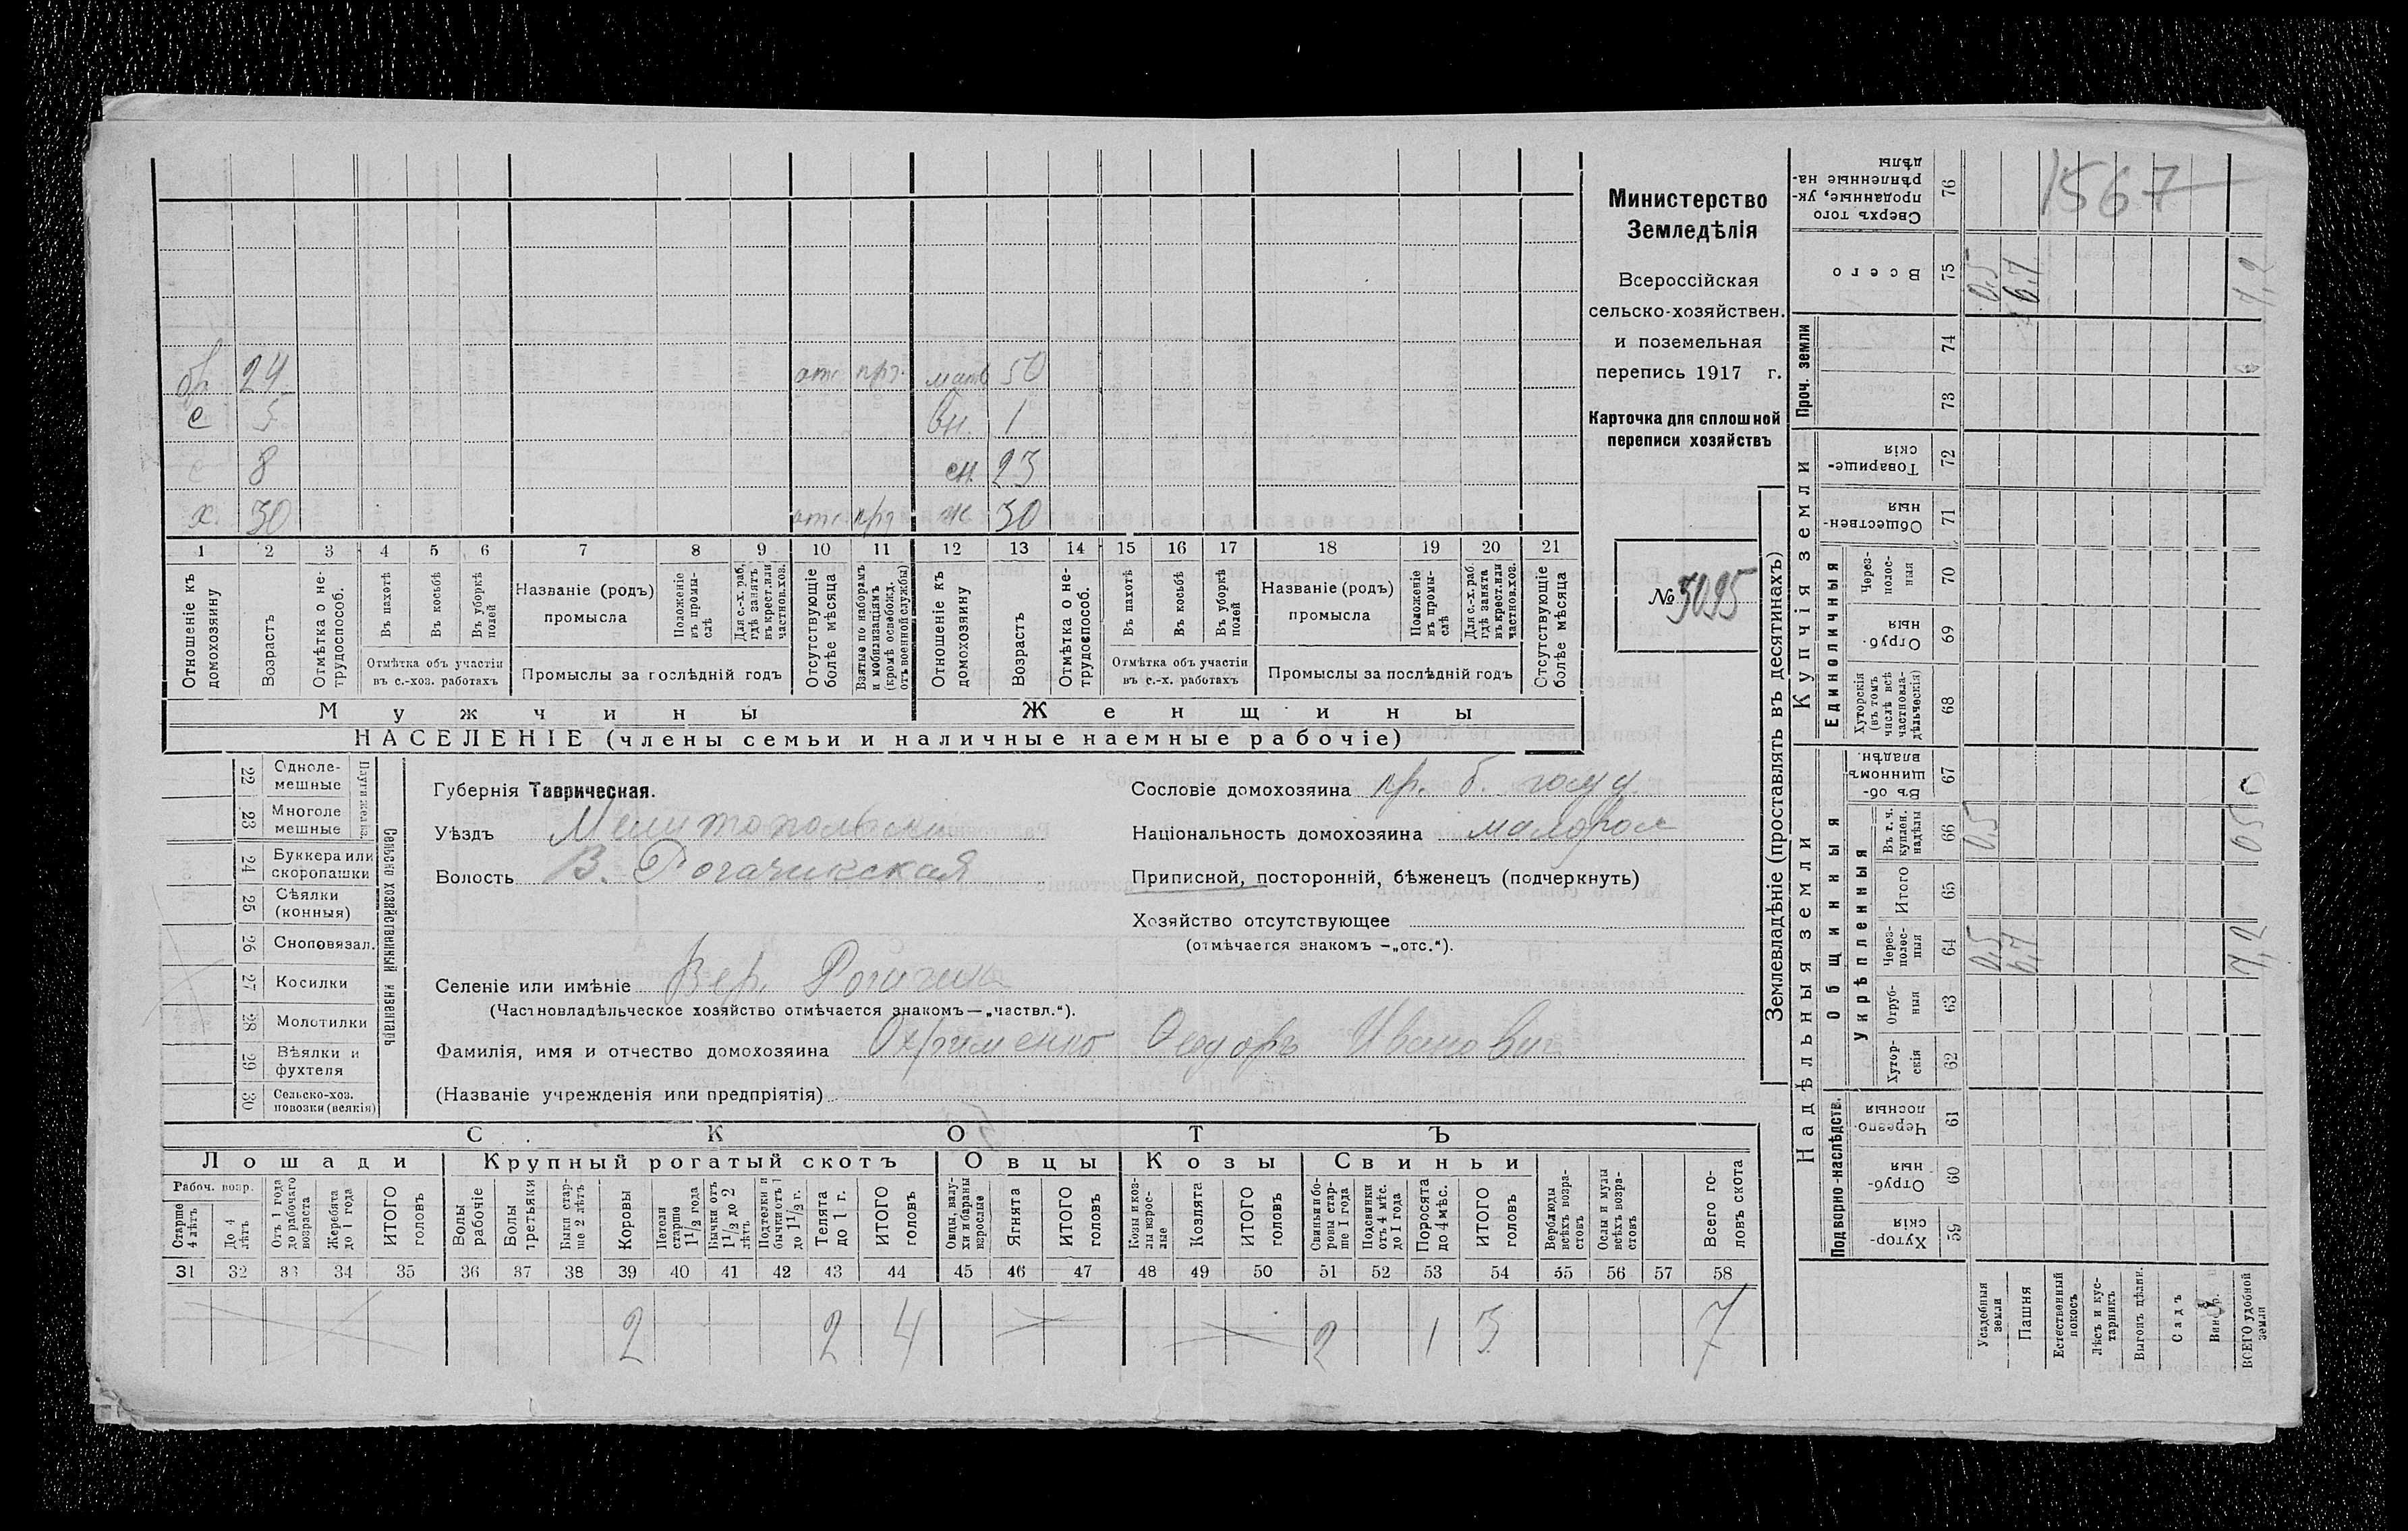 Министерство
Земледѣлія
Всероссійская
сельско-хозяйствен.
и поземельная
перепись 1917 г.
Карточка для сплошной
переписи хозяйствъ
№ 3095
1567
бр. 24 отс. прз. мать 50
с 5 вн. 1
с 8 сн. 23
х. 30 отс прз ж 30
1 2 3 4 5 6 7 8 9 10 11 12 13 14 15 16 17 18 19 20 21
Отношеніе къ домохозяину
Возрастъ
Отмѣтка о не-трудоспособ.
Въ пахотѣ
Въ косьбѣ
Въ уборкѣ полей
Отмѣтка объ участіи въ с.-хоз. работахъ
Названіе (родъ) промысла
Положеніе въ промы-слѣ
Для с.-х. раб. гдѣ занятъ въ крест. или частнов. хоз.
Промыслы за послѣдній годъ
Отсутствующіе болѣе мѣсяца
Взятые по наборамъ и мобилизаціямъ (кромѣ освобожд. отъ военной службы)
Отношеніе къ домохозяину
Возрастъ
Отмѣтка о не-трудоспособ.
Въ пахотѣ
Въ косьбѣ
Въ уборкѣ полей
Отмѣтка объ участіи въ с.-х. работахъ
Названіе (родъ) промысла
Положеніе въ промы-слѣ
Для с.-х. раб. гдѣ занята въ крест. или частнов. хоз.
Промыслы за послѣдній годъ
Отсутствующіе болѣе мѣсяца
Мужчины Женщины
НАСЕЛЕНІЕ (члены семьи и наличные наемные рабочіе)
Сельско хозяйственный инвентарь
22 Одноле-мешные
23 Многоле мешные
24 Буккера или скоропашки
25 Сѣялки (конныя)
26 Сноповязал.
27 Косилки
28 Молотилки
29 Вѣялки и фухтеля
30 Сельско-хоз. повозки (всякія)
Губернія Таврическая.
Уѣздъ Мелитопольскій
Волость В. Рогачикская
Селеніе или имѣніе Вер. Рогачик
(Частновладѣльческое хозяйство отмѣчается знакомъ—„частвл.“).
Фамилія, имя и отчество домохозяина Охрименко Ѳедоръ Иванович
(Названіе учрежденія или предпріятія)
Сословіе домохозяина кр. б.
Національность домохозяина малорос
Приписной, посторонній, бѣженецъ (подчеркнуть)
Хозяйство отсутствующее
(отмѣчается знакомъ —„отс.“).
СКОТЪ
Лошади Крупный рогатый скотъ Овцы Козы Свиньи
Рабоч. возр.
Старше 4 лѣтъ
До 4 лѣтъ
Отъ 1 года до рабочаго возраста
Жеребята до 1 года
ИТОГО головъ
Волы рабочіе
Волы третьяки
Быки стар-ше 2 лѣтъ
Коровы
Нетели старше 1½ года
Бычки отъ 1½ до 2 лѣтъ
Подтелки и бычки отъ 1 до 1½ г.
Телята до 1 г.
ИТОГО головъ
Овцы, валу-хи и бараны взрослые
Ягнята
ИТОГО головъ
Козы и коз-лы взрос-лые
Козлята
ИТОГО головъ
Свиньи и бо-ровы стар-ше 1 года
Подсвинки отъ 4 мѣс. до 1 года
Поросята до 4 мѣс.
ИТОГО головъ
Верблюды всѣхъ возра-стовъ
Ослы и мулы всѣхъ возра-стовъ
Всего го-ловъ скота
31 32 33 34 35 36 37 38 39 40 41 42 43 44 45 46 47 48 49 50 51 52 53 54 55 56 57 58
2 2 4 2 1 3 7
Землевладѣніе (проставлять въ десятинахъ)
Надѣльныя земли Купчія земли Проч. земли
Подворно-наслѣдств. Общинныя Единоличныя
Укрѣпленныя
Хутор-скія 59
Отруб-ныя 60
Черезпо-лосныя 61
Хутор-скія 62
Отруб-ныя 63
Через-полос-ныя 64
Итого 65
Въ т. ч. куплен. надѣлы 66
Въ об-щинномъ владѣн. 67
Хуторскія (въ томъ числѣ всѣ частновла-дѣльческія) 68
Отруб-ныя 69
Через-полос-ныя 70
Обществен-ныя 71
Товарище-скія 72
73
74
Всего 75
Сверхъ того проданные, ук-рѣпленные на-дѣлы 76
Усадебныя земли 0,5 0,5 0,5
Пашня 6,7 6,7
Естественный покосъ
Лѣсъ и кус-тарникъ
Выгонъ цѣлин.
Садъ
ВСЕГО удобной земли 7,2 0,5 7,2